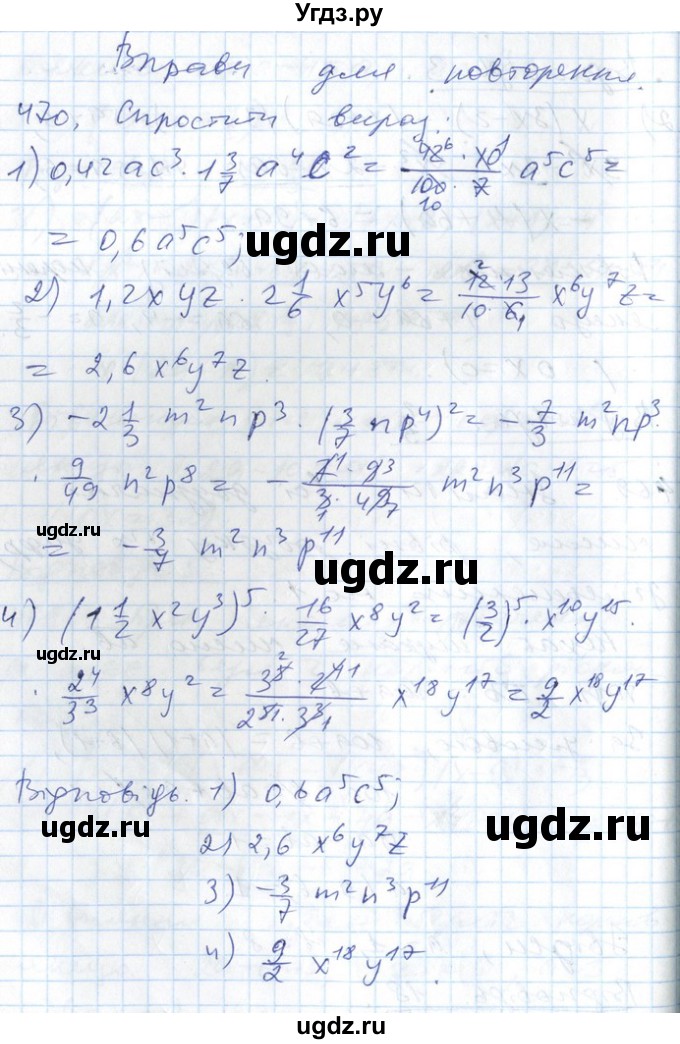 Угдз.ру
Вправи для повторення.
470. Спростити вираз:
1) 0,42ac³ · 1 3/7 a⁴c² = (42⁶ · 10¹)/(100 10 · 7) a⁵c⁵ =
= 0,6a⁵c⁵;
ugdz.ru
ugdz.ru
2) 1,2xyz · 2 1/6 x⁵y⁶ = (12² · 13)/(10 · 6₁) x⁶y⁷z =
= 2,6 x⁶y⁷z
3) -2 1/3 m²np³ · (3/7 np⁴)² = - 7/3 m²np³ ·
· 9/49 n²p⁸ = - (7¹ · 9³)/(3₁ · 49₇) m²n³p¹¹ =
ugdz.ru
= - 3/7 m²n³p¹¹
ugdz.ru
4) (1 1/2 x²y³)⁵ · 16/27 x⁸y² = (3/2)⁵ · x¹⁰y¹⁵ ·
ugdz.ru
· 2⁴/3³ x⁸y² = (3⁵ ² · 2⁴ ¹)/(2⁵ ¹ · 3³ ₁) x¹⁸y¹⁷ = 9/2 x¹⁸y¹⁷
Відповідь. 1) 0,6a⁵c⁵;
ugdz.ru
ugdz.ru
2) 2,6 x⁶y⁷z
3) - 3/7 m²n³p¹¹
4) 9/2 x¹⁸y¹⁷.
ugdz.ru
ugdz.ru